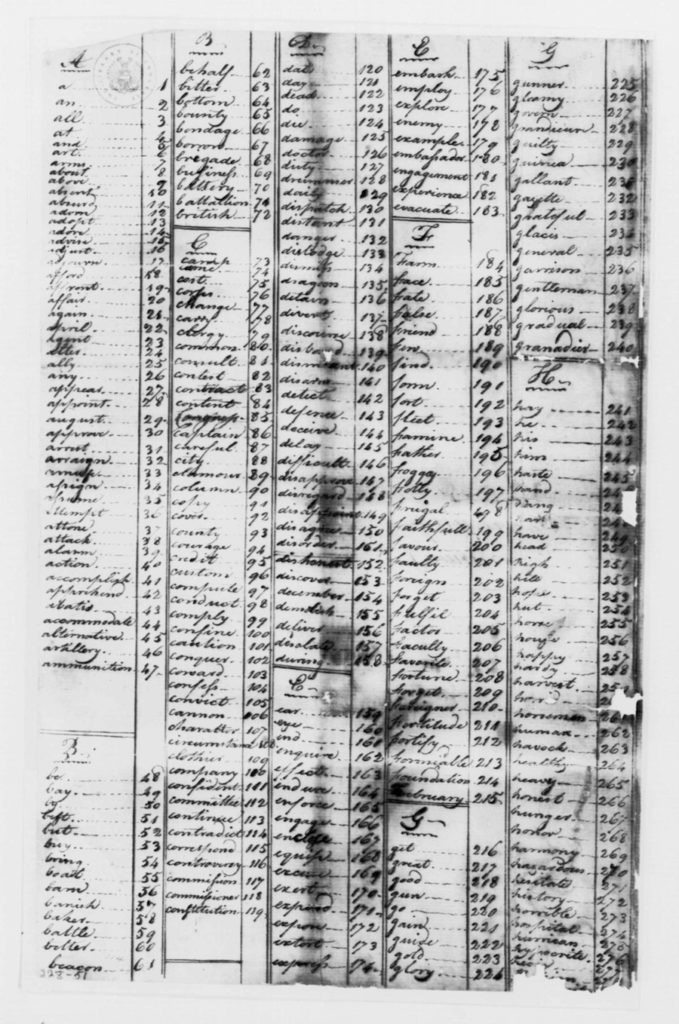 A
a 1
an 2
all 3
at 4
and 5
art 6
arms 7
about 8
above 9
absent 10
absurd 11
adorn 12
adopt 13
adore 14
advise 15
adjust 16
adjourn 17
afford 18
affront 19
affair 20
again 21
april 22
agent 23
alter 24
ally 25
any 26
appear 27
appoint 28
august 29
approve 30
arrest 31
arraign 32
amuse 33
assign 34
assume 35
attempt 36
attone 37
attack 38
alarm 39
action 40
accomplish 41
apprehend 42
abatis 43
accommodate 44
alternative 45
artillery 46
ammunition 47
B
be 48
bay 49
by 50
best 51
but 52
buy 53
bring 54
boat 55
barn 56
banish 57
baker 58
battle 59
better 60
beacon 61
B
behalf 62
bitter 63
bottom 64
bounty 65
bondage 66
borrow 67
bregade 68
business 69
battery 70
battallion 71
british 72
C
camp 73
came 74
cost 75
corps 76
change 77
carry 78
clergy 79
common 80
consult 81
contest 82
contract 83
content 84
Congress 85
captain 86
careful 87
city 88
clamour 89
column 90
copy 91
cover 92
county 93
courage 94
credit 95
custom 96
compute 97
conduct 98
comply 99
confine 100
caution 101
conquer 102
coward 103
confess 104
convict 105
cannon 106
charactor 107
circumstance 108
clothier 109
company 110
confident 111
committee 112
continue 113
contradict 114
correspond 115
controversy 116
commission 117
commissioner 118
constitution 119
D
dat 120
day 121
dead 122
do 123
die 124
damage 125
doctor 126
duty 127
drummer 128
daily 129
dispatch 130
distant 131
danger 132
dislodge 133
dismiss 134
dragoon 135
detain 136
divert 137
discourse 138
disband 139
dismount 140
disarm 141
detect 142
defence 143
deceive 144
delay 145
difficult 146
disapprove 147
disregard 148
disappoint 149
disagree 150
disorder 151
dishonest 152
discover 153
december 154
demolish 155
deliver 156
desolate 157
during 158
E
ear 159
eye 160
end 161
enquire 162
effect 163
endure 164
enforce 165
engage 166
enclose 167
equip 168
excuse 169
exert 170
expend 171
expire 172
extort 173
express 174
E
embark 175
employ 176
explore 177
enemy 178
example 179
embassador 180
engagement 181
experience 182
evacuate 183
F
Farm 184
face 185
fate 186
false 187
friend 188
for 189
find 190
form 191
fort 192
fleet 193
famine 194
father 195
foggy 196
frolly 197
frugal 198
faithfull 199
favour 200
faulty 201
foreign 202
forget 203
fulfil 204
factor 205
faculty 206
favorite 207
fortune 208
forget 209
foreigner 210
fortitude 211
fortify 212
formidable 213
foundation 214
February 215
G
get 216
great 217
good 218
gun 219
go 220
gain 221
guide 222
gold 223
glory 224
G
gunner 225
gloomy 226
govern 227
grandieur 228
guilty 229
guinea 230
gallant 231
gazette 232
grateful 233
glacis 234
general 235
garrison 236
gentleman 237
glorious 238
gradual 239
granadier 240
H
hay 241
he 242
his 243
him 244
haste 245
hand
hang
have 249
head 250
high 251
hill 252
hope 253
hut 254
horse 255
house 256
happy 257
hardy 258
harvest
horsemen
human 262
havock 263
healthy 264
heavy 265
honest 266
hunger 267
honor 268
harmony 269
hazardous 270
hesitate 271
history 272
horrible 273
hospital 274
hurrican 275
hypocrite 276
228-51